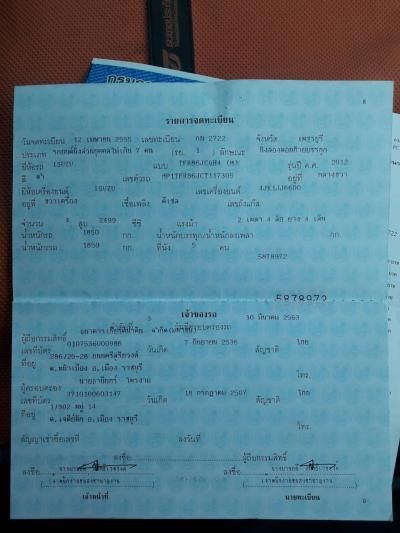 กรมก
8
รายการจดทะเบียน
วันจดทะเบียน 12 เมษายน 2555 เลขทะเบียน กน 2722 จังหวัด เพชรบุรี
ประเภท รถยนต์นั่งส่วนบุคคลไม่เกิน 7 คน (รย. 1 ) ลักษณะ นั่งสองตอนท้ายบรรทุก
ยี่ห้อรถ ISUZU แบบ TFR86JCGH4 (M) รุ่นปี ค.ศ. 2012
สี ดำ เลขตัวรถ MP1TFR86JCT117305 อยู่ที่ กลางขวา
ยี่ห้อเครื่องยนต์ ISUZU เลขเครื่องยนต์
อยู่ที่ ขวาเครื่อง เชื้อเพลิง ดีเซล เลขถังแก๊ส
จำนวน 4 สูบ 2499 ซีซี แรงม้า 2 เพลา 4 ล้อ ยาง 4 เส้น
น้ำหนักรถ 1850 กก. น้ำหนักบรรทุก/น้ำหนักลงเพลา กก.
น้ำหนักรวม 1850 กก. ที่นั่ง 5 คน
5878972
5878972
เจ้าของรถ
30 มีนาคม 2563
ผู้ถือกรรมสิทธิ์ ธนาคารเกียรตินาคิน จำกัด(มหาชน)
เลขที่บัตร 0107536000986 วันเกิด 7 กันยายน 2536 สัญชาติ ไทย
ที่อยู่ 286/25-28 ถนนศรีสุริยวงศ์
ต.หน้าเมือง อ.เมือง ราชบุรี โทร.
ผู้ครอบครอง
เลขที่บัตร 3710100603147 วันเกิด 18 กรกฎาคม 2507 สัญชาติ ไทย
ที่อยู่ 1/302 หมู่ 14
ต.เจดีย์หัก อ.เมือง ราชบุรี โทร.
สัญญาเช่าซื้อเลขที่ ลงวันที่
ลงชื่อ ผู้ถือกรรมสิทธิ์
ลงชื่อ ลงชื่อ
เจ้าหน้าที่ นายทะเบียน